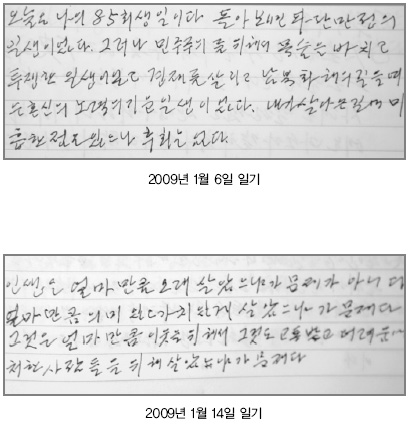 오늘은 나의 85회 생일이다. 돌아보면 파란만장의
일생이었다. 그러나 민주주의를 위해 목숨을 바치고
투쟁한 일생이었고 경제를 살리고 남북 화해의 길을 여
는 혼신의 노력을 기울인 일생이었다. 내가 살아온 길에 미
흡한 점은 있으나 후회는 없다.
2009년 1월 6일 일기
인생은 얼마만큼 오래 살았느냐가 문제가 아니다
얼마만큼 의미 있고 가치 있게 살았느냐가 문제다
그것은 얼마만큼 이웃을 위해서 그것도 고통받고 어려움에
처한 사람들을 위해 살았느냐가 문제다
2009년 1월 14일 일기